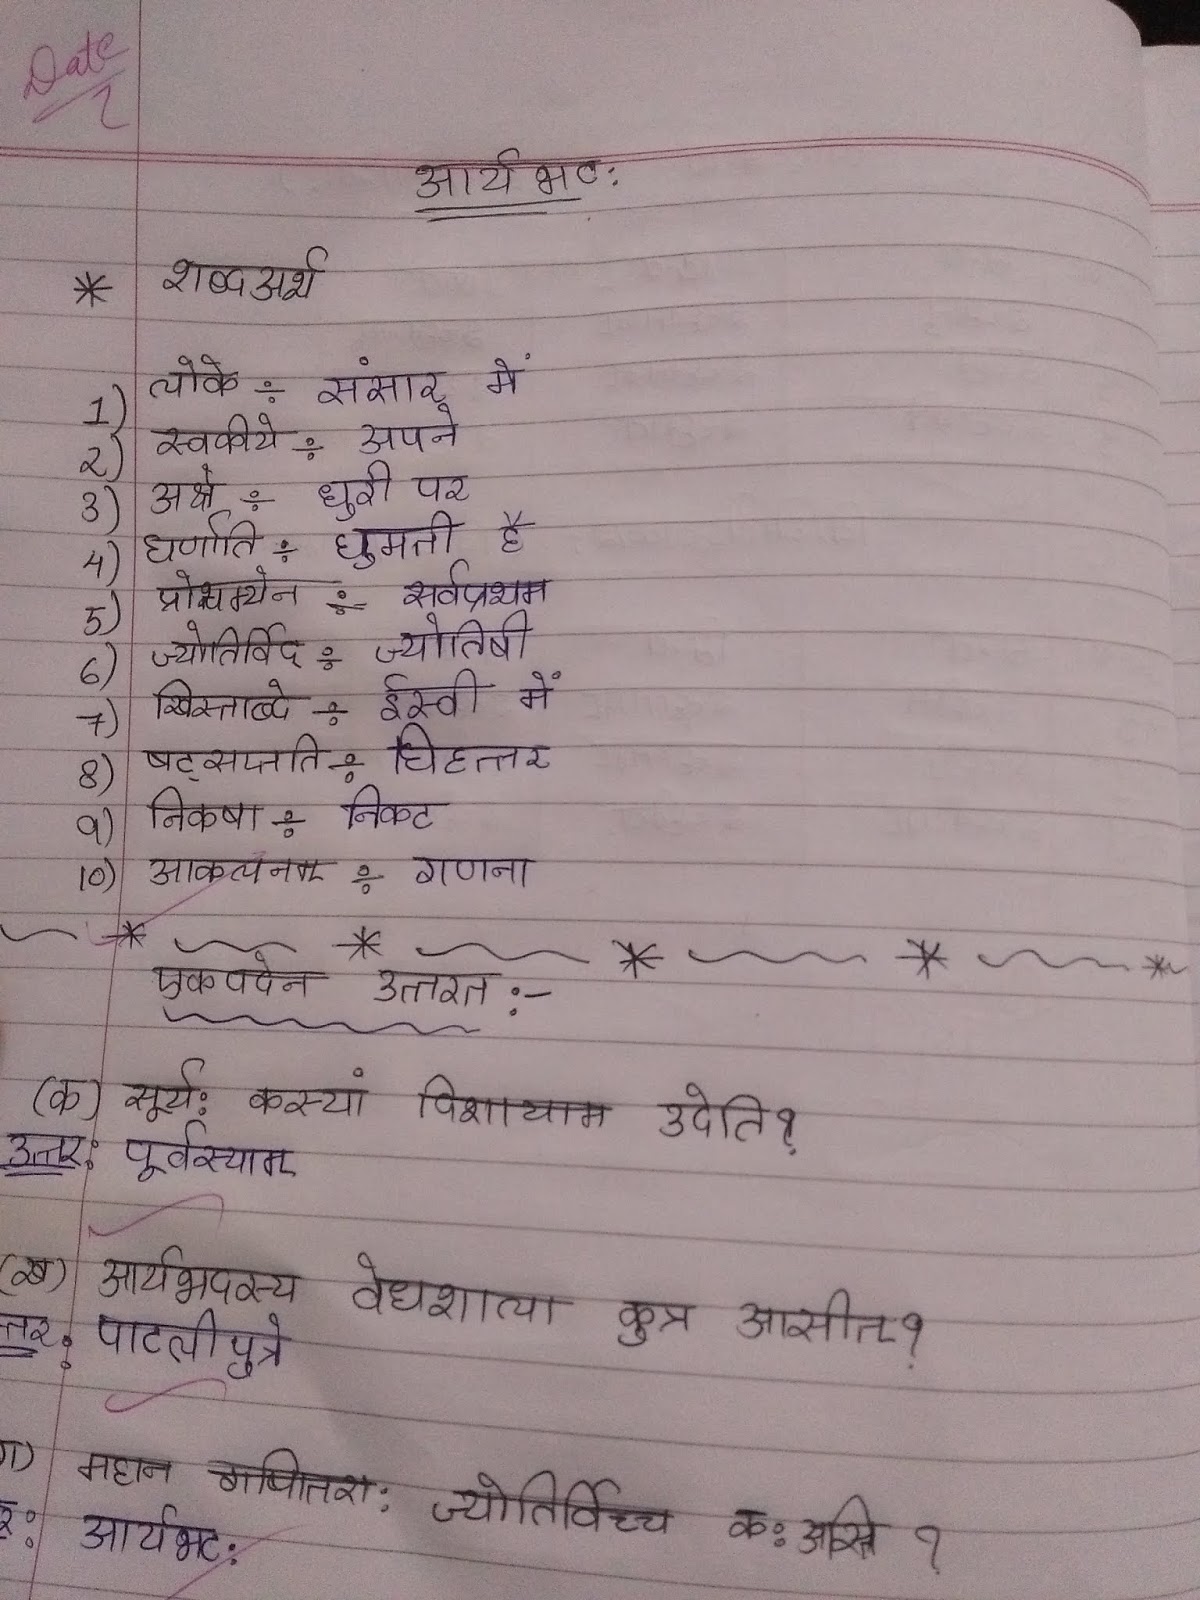 Date
आर्यभटः
* शब्द अर्थ
1) लोके ÷ संसार में
2) स्वकीये ÷ अपने
3) अक्षे ÷ धुरी पर
4) घर्णाति ÷ घुमती है
5) ÷ सर्वप्रथम
6) ज्योतिर्विद ÷ ज्योतिषी
7) ख्रिस्ताब्दे ÷ ईस्वी में
8) षट्सप्तति ÷ छिहत्तर
9) निकषा ÷ निकट
10) आकलनम् ÷ गणना
एकपदेन उत्तरत :-
(क) सूर्यः कस्यां उदेति?
उत्तर: पूर्वस्याम्
(ख) वेधशाला कुत्र आसीत्?
त्तर: पाटलीपुत्रे
ग) महान ज्योतिर्विच्च कः अस्ति ?
र: आर्यभटः